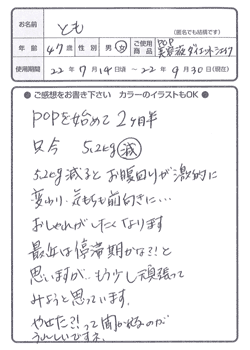 お名前
とも
(匿名でも結構です)
年齢 47才 性別 男・女 ご使用商品 POP 美容液ダイエットシェイク
使用期間 22年7月14日頃 ~ 22年9月30日(現在)
● ご感想をお書き下さい カラーのイラストもOK ●
POPを始めて2ヶ月半
只今 5.2kg 減
5.2kg減るとお腹回りが激的に
変わり、気もちも前向きに…
おしゃれがしたくなります
最近は停滞期かな?!と
思いますが、もう少し頑張って
みようと思っています。
やせた?!って聞かれるのが
うれしいですネ